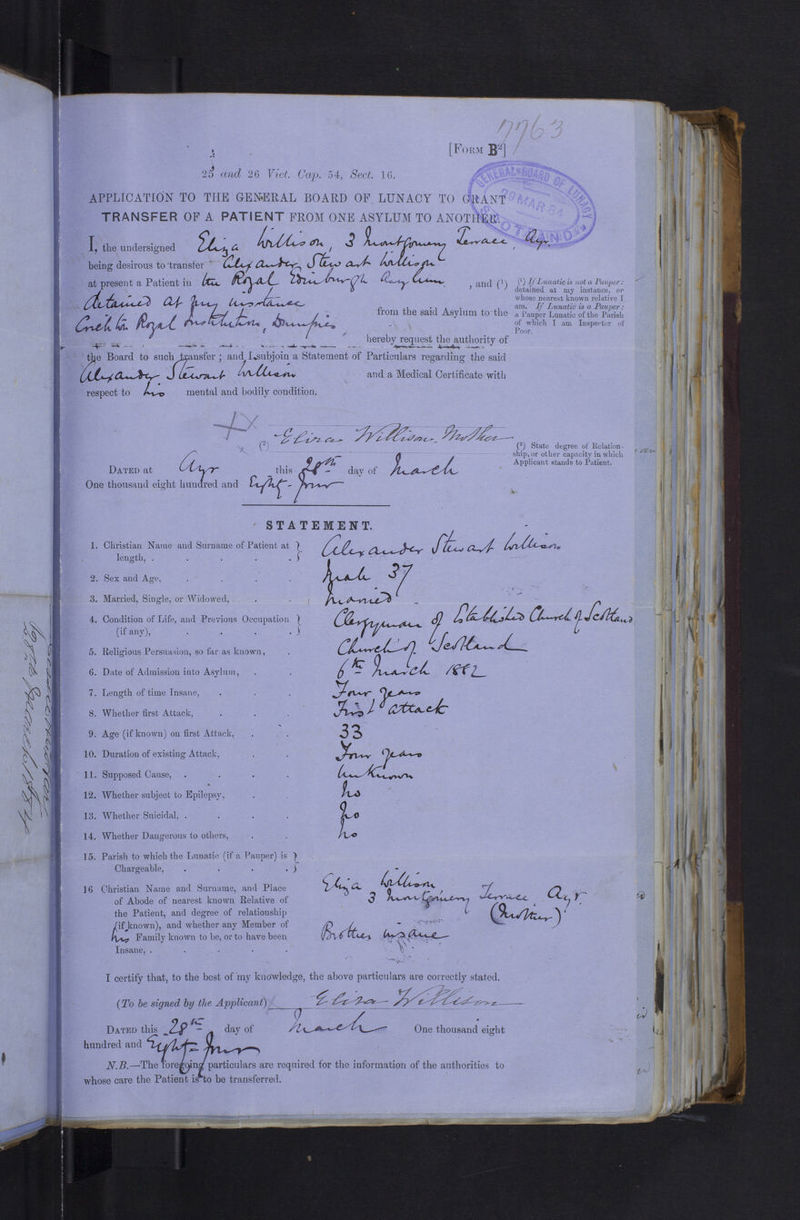 7763
[FORM B²]
25 and 26 Vict. Cap. 54, Sect. 16.
GENERAL BOARD OF LUNACY
29 MAR 84
SCOTLAND
APPLICATION TO THE GENERAL BOARD OF LUNACY TO GRANT
TRANSFER OF A PATIENT FROM ONE ASYLUM TO ANOTHER.
I, the undersigned Eliza Willison, 3 Montgomery Terrace, Ayr,
being desirous to transfer Alexander Stewart Willison
at present a Patient in the Royal Edinburgh Asylum, and (¹)
detained at my instance from the said Asylum to the
Crichton Royal Institution, Dumfries,
hereby request the authority of
the Board to such transfer; and I subjoin a Statement of Particulars regarding the said
Alexander Stewart Willison and a Medical Certificate with
respect to his mental and bodily condition.
(¹) If Lunatic is not a Pauper:
detained at my instance, or
whose nearest known relative I
am. If Lunatic is a Pauper:
a Pauper Lunatic of the Parish
of which I am Inspector of
Poor.
(²) Eliza Willison Mother
(²) State degree of Relation-
ship, or other capacity in which
Applicant stands to Patient.
DATED at Ayr this 28th day of March
One thousand eight hundred and Eighty-four
STATEMENT.
1. Christian Name and Surname of Patient at length, . Alexander Stewart Willison
2. Sex and Age, Male 37
3. Married, Single, or Widowed, Married
4. Condition of Life, and Previous Occupation (if any), Clergyman of Established Church of Scotland
5. Religious Persuasion, so far as known, Church of Scotland
6. Date of Admission into Asylum, 6th March 1882
7. Length of time Insane, Four years
8. Whether first Attack, First attack
9. Age (if known) on first Attack, 33
10. Duration of existing Attack, Four years
11. Supposed Cause, Unknown
12. Whether subject to Epilepsy, No
13. Whether Suicidal, No
14. Whether Dangerous to others, No
15. Parish to which the Lunatic (if a Pauper) is
Chargeable,
16 Christian Name and Surname, and Place
of Abode of nearest known Relative of
the Patient, and degree of relationship
(if known), and whether any Member of
his Family known to be, or to have been
Insane,
Eliza Willison
3 Montgomery Terrace Ayr.
(Mother)
Brother insane
I certify that, to the best of my knowledge, the above particulars are correctly stated.
(To be signed by the Applicant) Eliza Willison
DATED this 28th day of March One thousand eight
hundred and Eighty-four
N.B.—The foregoing particulars are required for the information of the authorities to
whose care the Patient is to be transferred.